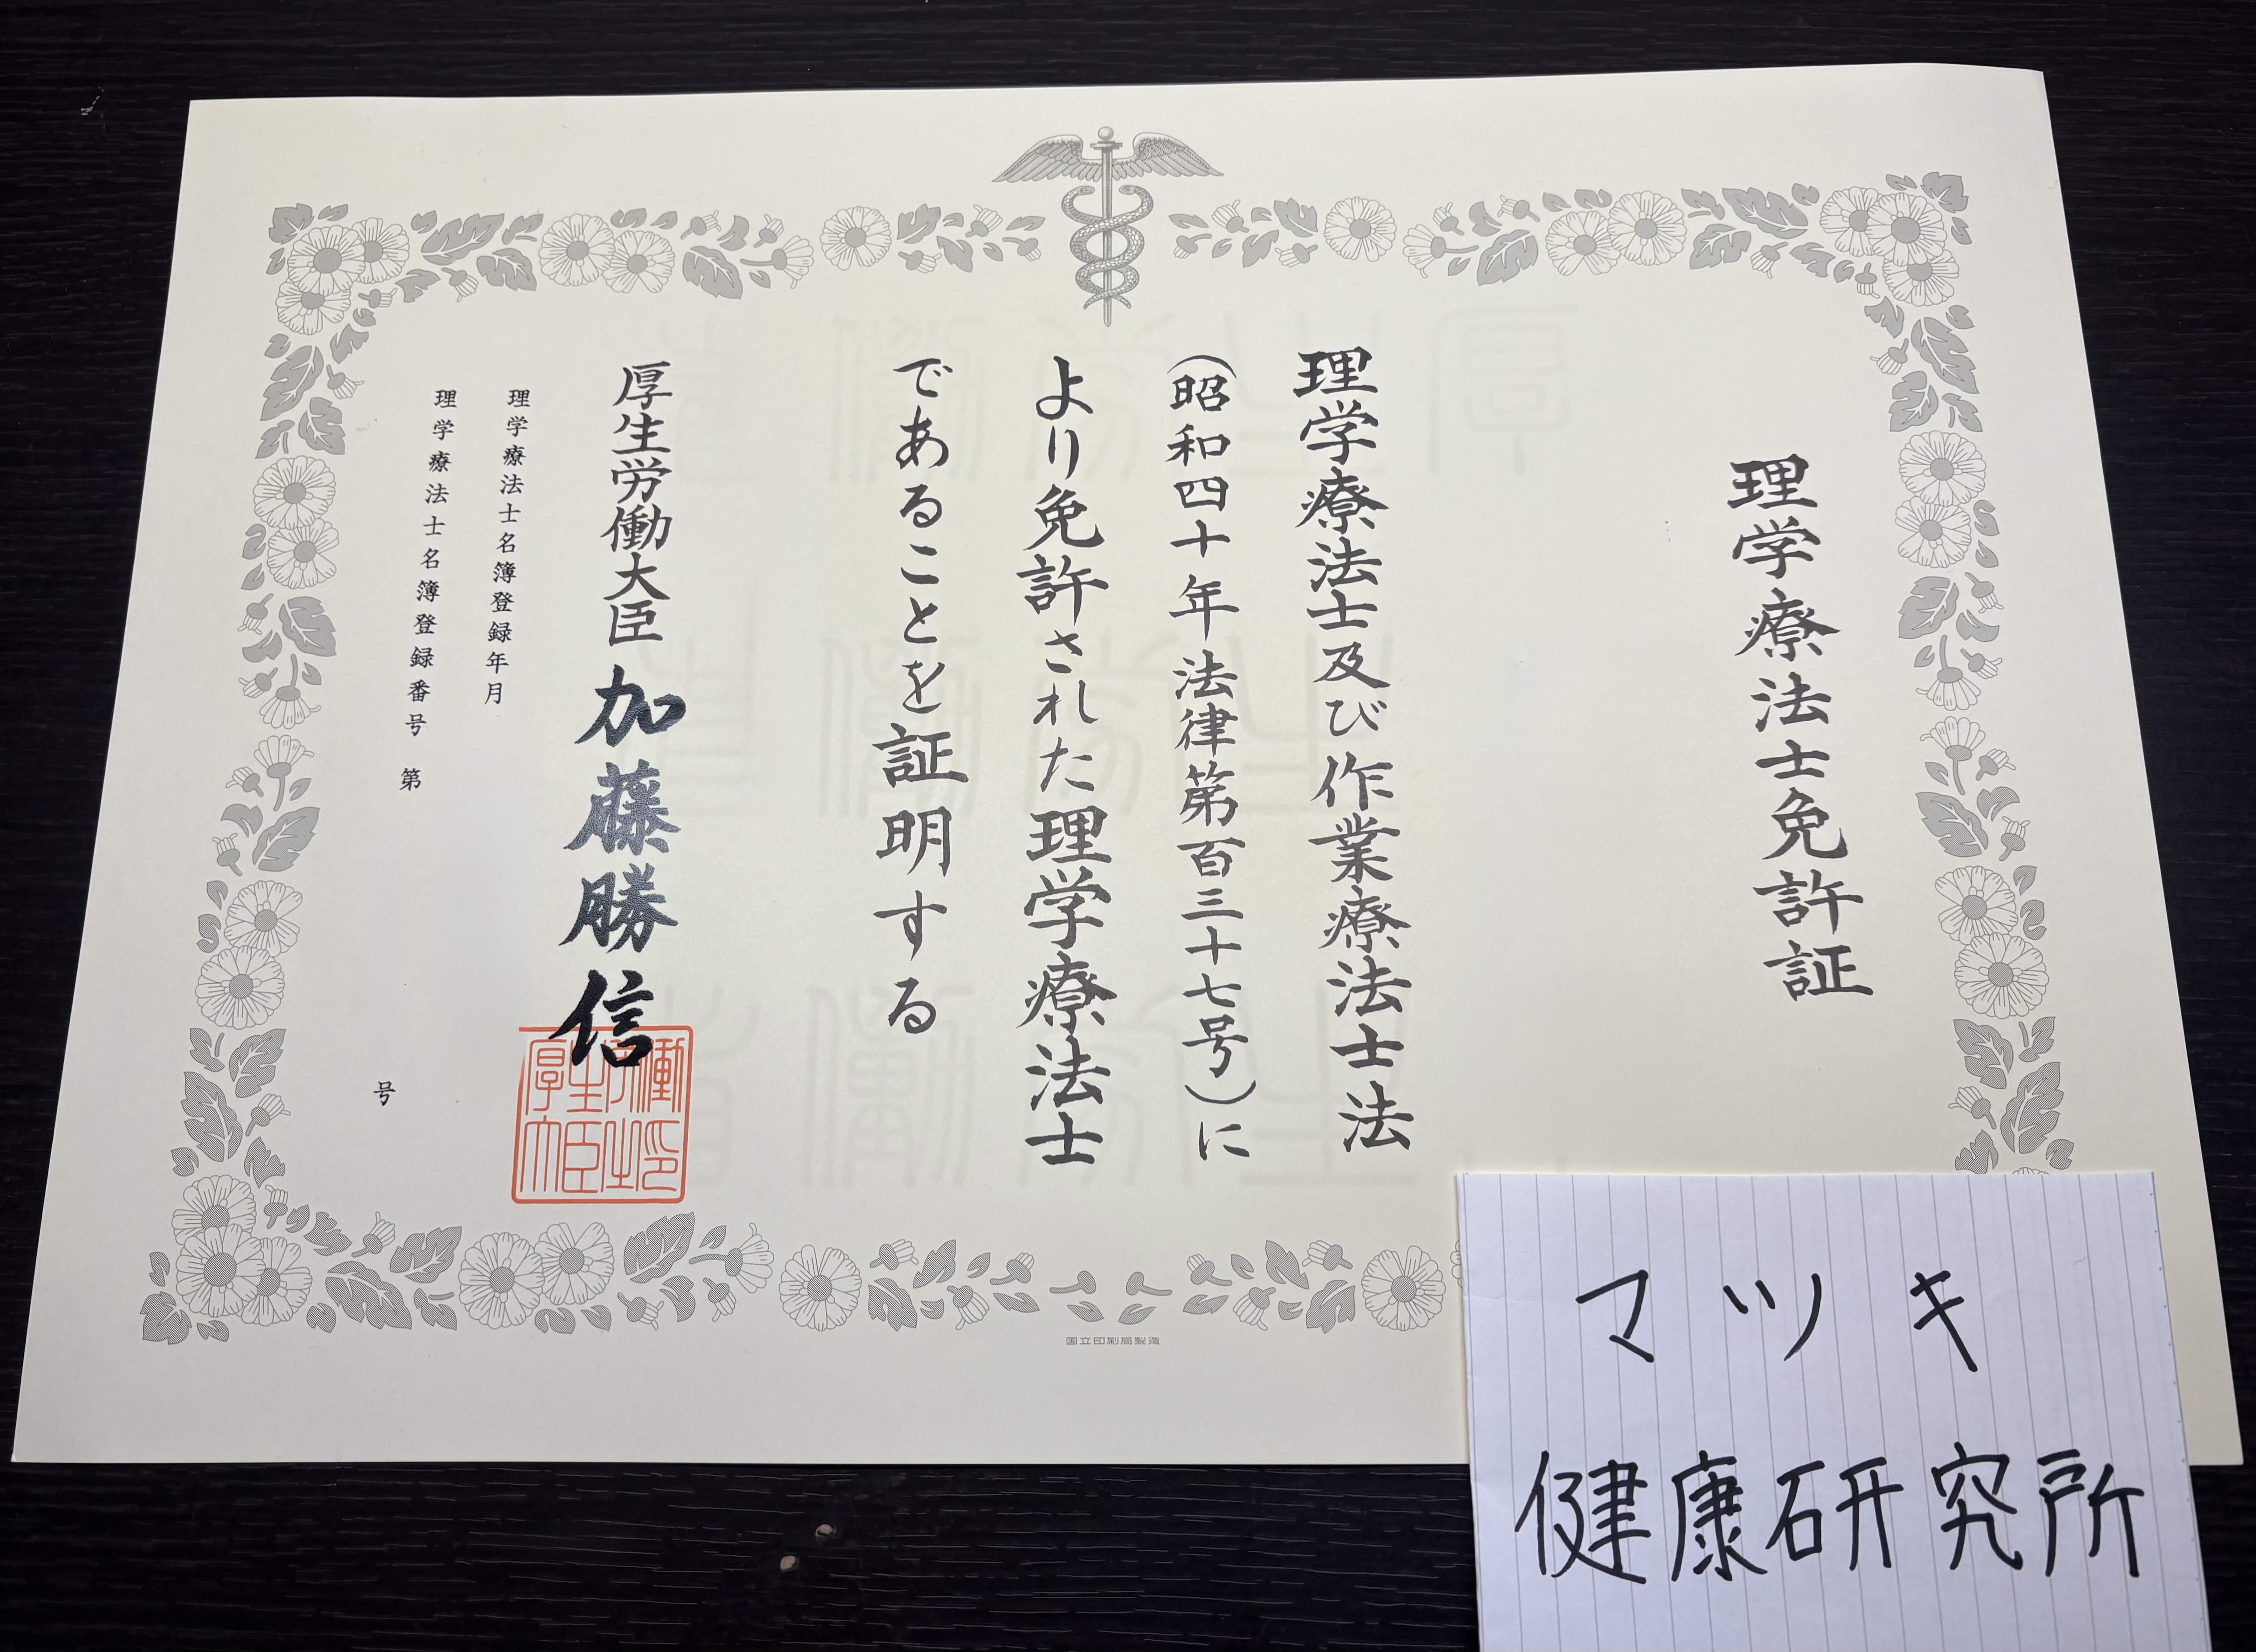 理学療法士免許証
理学療法士及び作業療法士法
(昭和四十年法律第百三十七号)に
より免許された理学療法士
であることを証明する
厚生労働大臣 加藤勝信
理学療法士名簿登録年月
理学療法士名簿登録番号 第 号
国立印刷局製造
マツキ
健康研究所